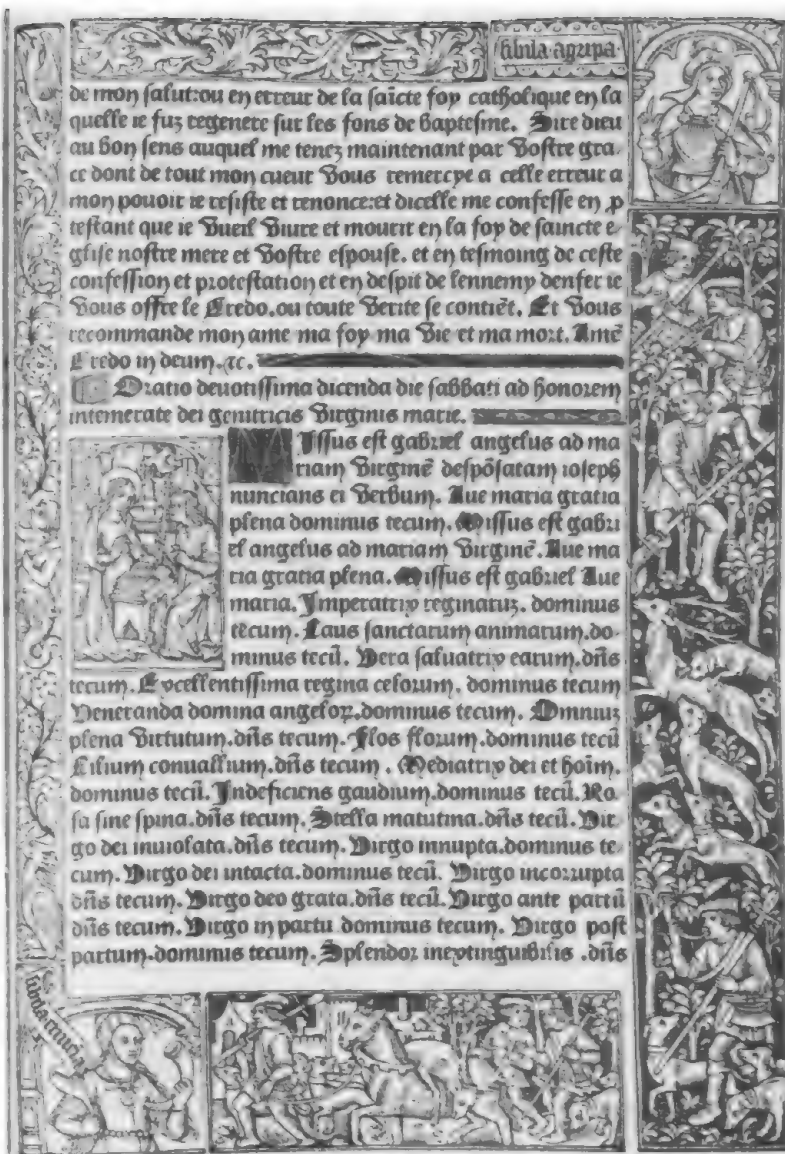 sibila agripa
de mon salut:ou en erreur de la saĩcte foy catholique en la
quelle ie fuz regenere sur les fons de baptesme. Sire dieu
au bon sens auquel me tenez maintenant par vostre gra
ce dont de tout mon cueur vous remercye a celle erreur a
mon pouoir ie resiste et renonce:et dicelle me confesse en p
testant que ie vueil viure et mourir en la foy de saincte e
glise nostre mere et vostre espouse. et en tesmoing de ceste
confession et protestation et en despit de lennemy denfer ie
vous offre le Credo.ou toute verite se contiẽt. Et vous
recommande mon ame ma foy ma vie et ma mort. Amẽ
Credo in deum.⁊c.
Oratio deuotissima dicenda die sabbati ad honorem
intemerate dei genitricis virginis marie.
Missus est gabriel angelus ad ma
riam virginẽ despõsatam ioseph
nuncians ei verbum. Aue maria gratia
plena dominus tecum. Missus est gabri
el angelus ad mariam virginẽ. Aue ma
ria gratia plena. Missus est gabriel Aue
maria. Imperatrix reginaruꝫ. dominus
tecum. Laus sanctarum animarum.do-
minus tecũ. Vera saluatrix earum.dñs
tecum. Excellentissima regina celorum. dominus tecum
Veneranda domina angeloꝝ.dominus tecum. Omniuꝫ
plena virtutum.dñs tecum. Flos florum.dominus tecũ
Lilium conuallium.dñs tecum. Mediatrix dei et hoĩm.
dominus tecũ. Indeficiens gaudium.dominus tecũ. Ro
sa sine spina.dñs tecum. Stella matutina.dñs tecũ. Vir
go dei inuiolata.dñs tecum. Virgo innupta.dominus te
cum. Virgo dei intacta.dominus tecũ. Virgo incorrupta
dñs tecum. Virgo deo grata.dñs tecũ. Virgo ante partũ
dñs tecum. Virgo in partu dominus tecum. Virgo post
partum.dominus tecum. Splendor inextinguibilis .dñs
sibila